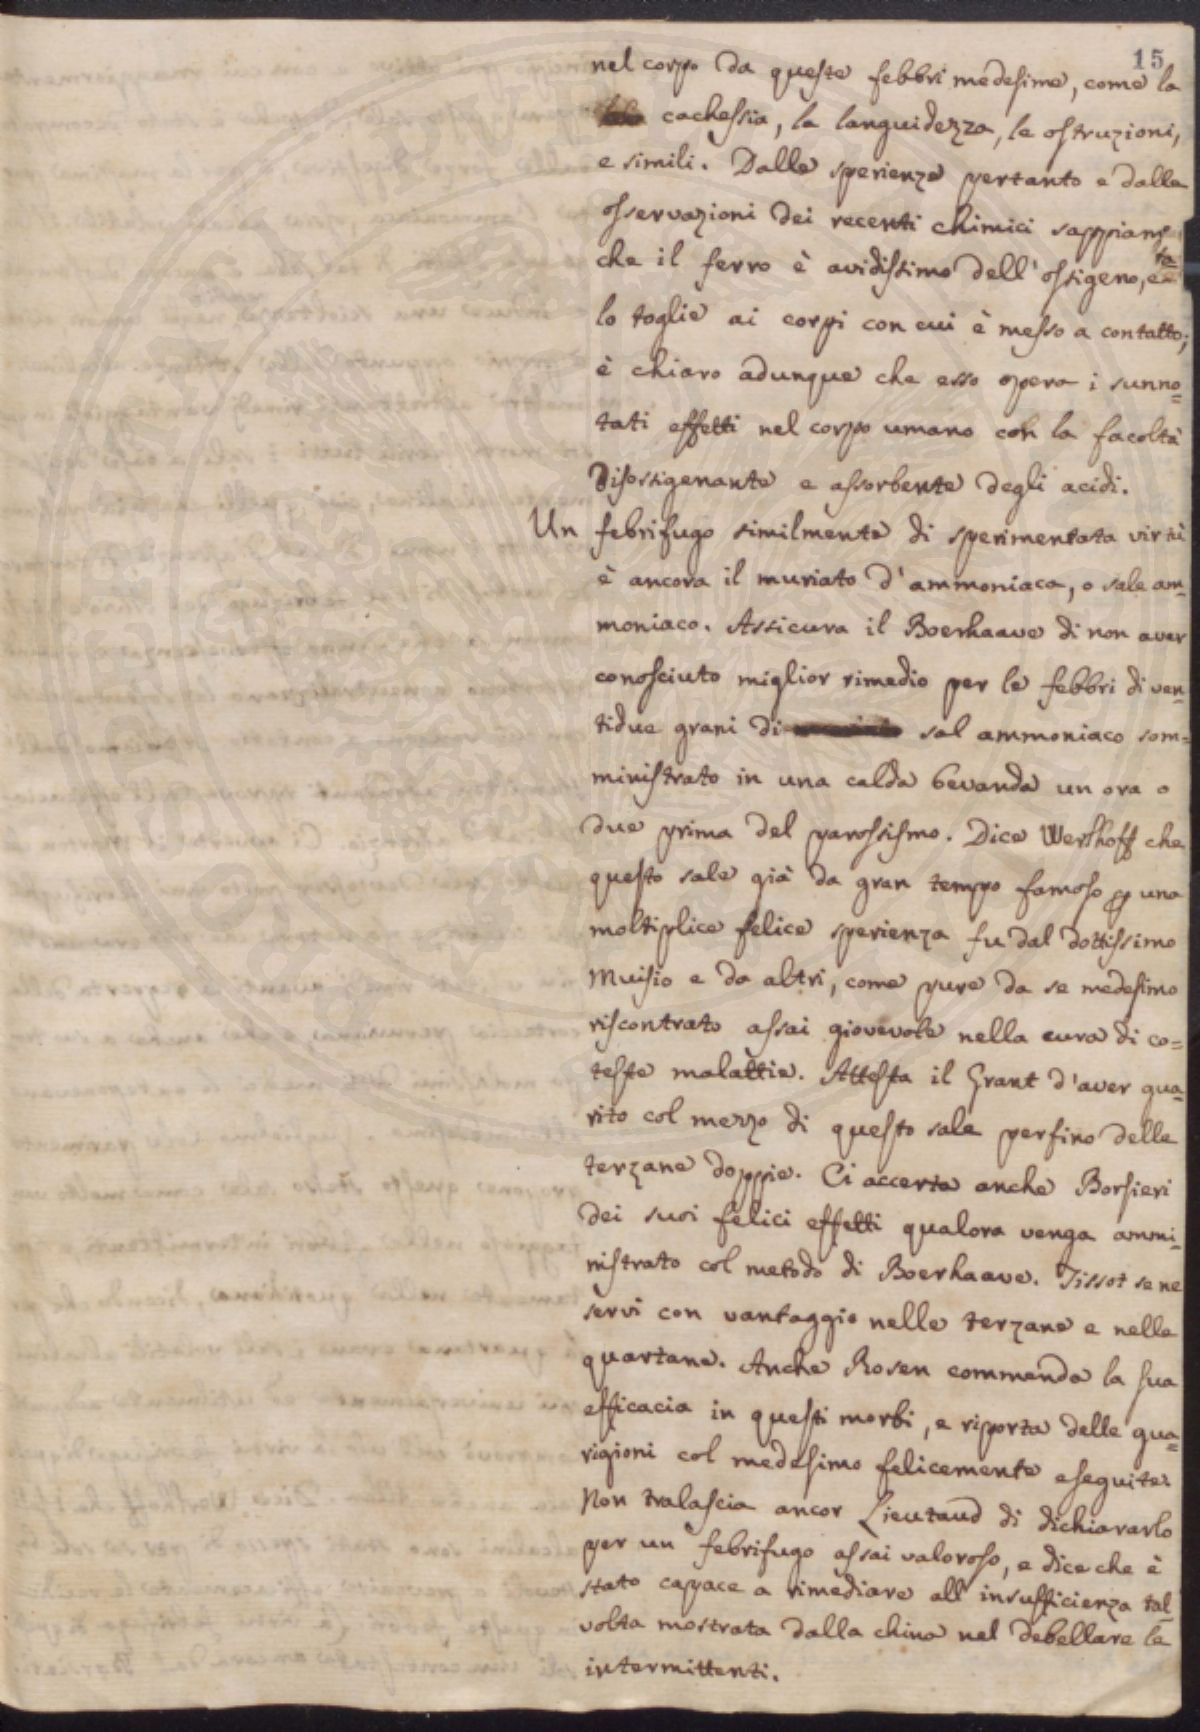 15
nel corpo da queste febbri medesime, come la
cachessia, la languidezza, le ostruzioni,
e simili. Dalle sperienze pertanto e dalle
osservazioni dei recenti chimici sappiamo
che il ferro è avidissimo dell' ossigeno, e
lo toglie ai corpi con cui è messo a contatto;
è chiaro adunque che esso opera i sunno=
tati effetti nel corpo umano con la facoltà
disossigenante e assorbente degli acidi.
Un febrifugo similmente di sperimentata virtù
è ancora il muriato d'ammoniaca, o sale am=
moniaco. Assicura il Boerhaave di non aver
conosciuto miglior rimedio per le febbri di ven=
tidue grani di sal ammoniaco som=
ministrato in una calda bevanda un ora o
due prima del parossismo. Dice Werlhoff che
questo sale già da gran tempo famoso una
moltiplice felice sperienza fu dal dottissimo
Muisio e da altri, come pure da se medesimo
riscontrato assai giovevole nella cura di co=
teste malattie. Attesta il Grant d'aver gua=
rito col mezzo di questo sale perfino delle
terzane doppie. Ci accerta anche Borsieri
dei suoi felici effetti qualora venga ammi=
nistrato col metodo di Boerhaave. Tissot se ne
servì con vantaggio nelle terzane e nelle
quartane. Anche Rosen commenda la sua
efficacia in questi morbi, e riporta delle gua=
rigioni col medesimo felicemente eseguite.
Non tralascia ancor Lieutaud di dichiararlo
per un febrifugo assai valoroso, e dice che è
stato capace a rimediare all' insufficienza tal=
volta mostrata dalla china nel debellare le
intermittenti.